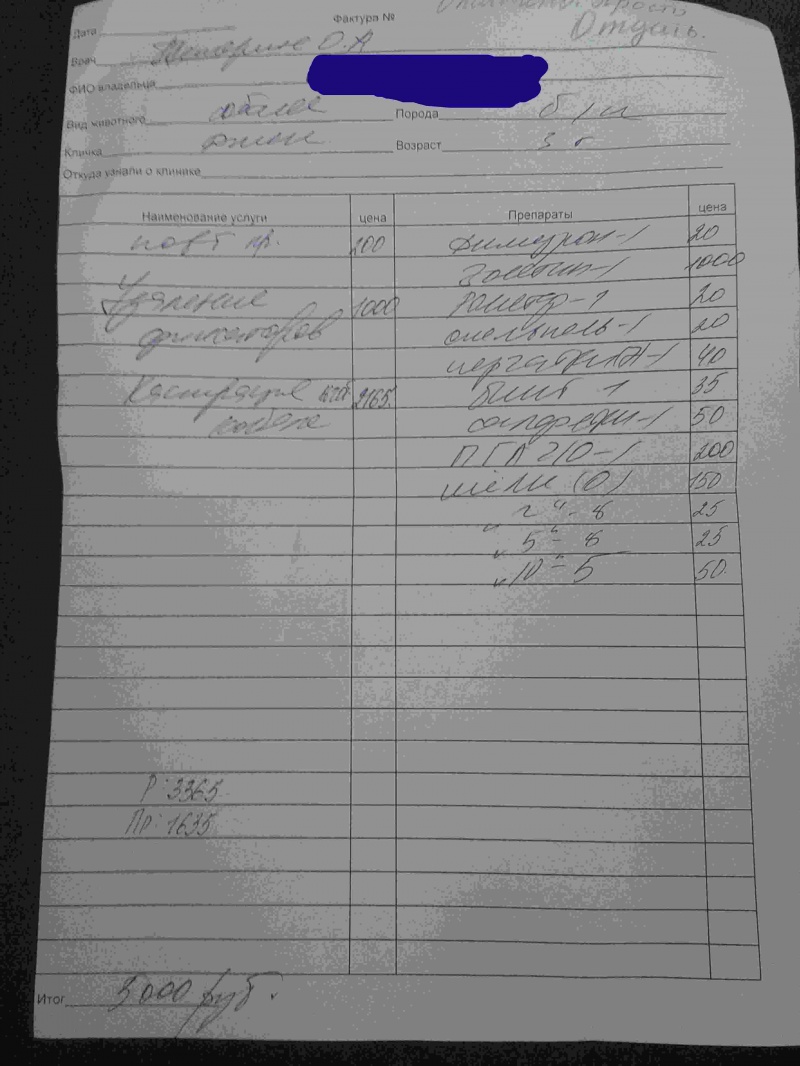 Фактура №
Отдать.
Дата
Врач О.А
ФИО владельца
Вид животного собака Порода б/п
Кличка Возраст 3 г
Откуда узнали о клинике
Наименование услуги цена Препараты цена
повт пр. 200 -1 20
Золетил-1 1000
Удаление 1000 -1 20
фиксаторов скальпель-1 20
перчатки -1 40
Кастрация 2165 бинт 1 35
кобеля салфетки-1 50
ПГА 2/0-1 200
шпр (0) 150
" 2" - 6 25
" 5" - 6 25
" 10" - 5 50.
Р: 3365
Пр: 1635
Итог 5000 руб.